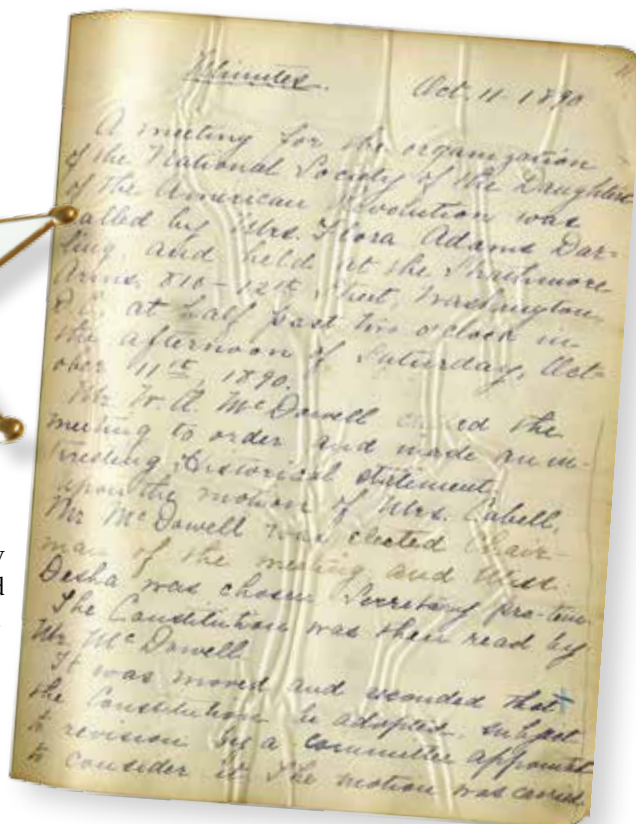 Minutes. Oct. 11-1890
A meeting for the organization
of the National Society of the Daughters
of the American Revolution was
called by Mrs. Flora Adams Dar-
ling, and held at the Strathmore
Arms, 810-12th Street, Washington,
D.C. at half past two o'clock in
the afternoon of Saturday, Oct-
ober 11th, 1890.
Mr. W. A. McDowell called the
meeting to order and made an in-
teresting, historical statement,
upon the motion of Mrs. Cabell,
Mr McDowell was elected Chair-
man of the meeting and Miss
Desha was chosen Secretary pro-tem.
The Constitution was then read by
Mr McDowell
It was moved and seconded that
the Constitution be adopted, subject
to revision by a committee appointed
to consider it The motion was carried
y
d